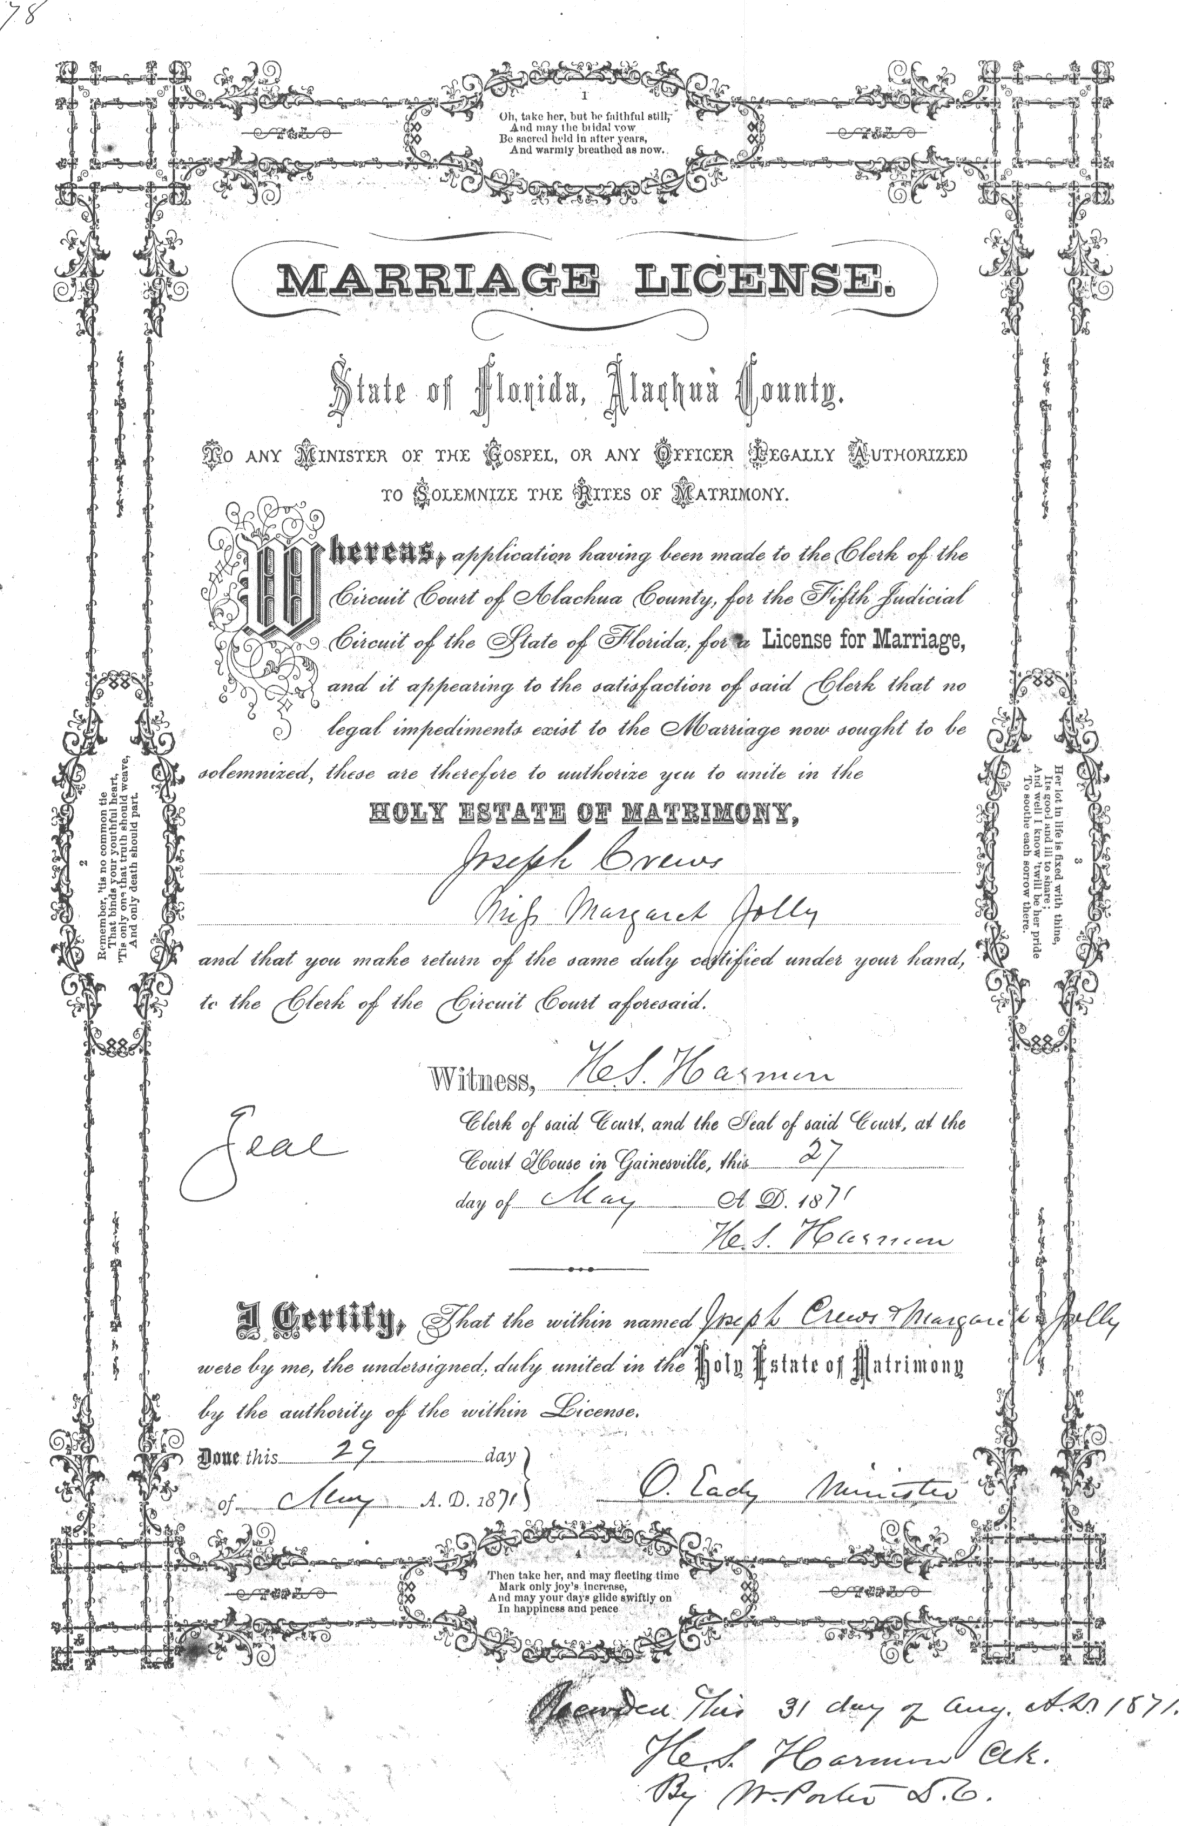 78
1
Oh, take her, but be faithful still,
And may the bridal vow
Be sacred held in after years,
And warmly breathed as now.
MARRIAGE LICENSE.
State of Florida, Alachua County.
TO ANY MINISTER OF THE GOSPEL, OR ANY OFFICER LEGALLY AUTHORIZED
TO SOLEMNIZE THE RITES OF MATRIMONY.
Whereas, application having been made to the Clerk of the
Circuit Court of Alachua County, for the Fifth Judicial
Circuit of the State of Florida, for a License for Marriage,
and it appearing to the satisfaction of said Clerk that no
legal impediments exist to the Marriage now sought to be
solemnized, these are therefore to authorize you to unite in the
HOLY ESTATE OF MATRIMONY,
Joseph Crews
Miss Margaret Jolly
and that you make return of the same duly certified under your hand,
to the Clerk of the Circuit Court aforesaid.
2
Remember, 'tis no common tie
That binds your youthful heart,
'Tis only one that truth should weave,
And only death should part.
3
Her lot in life is fixed with thine,
Its good and ill to share;
And well I know 'twill be her pride
To soothe each sorrow there.
Witness, H.S. Harmon
Clerk of said Court, and the Seal of said Court, at the
Seal
Court House in Gainesville, this 27
day of May A. D. 1871
H.S. Harmon
I Certify, That the within named Joseph Crews & Margaret Jolly
were by me, the undersigned, duly united in the Holy Estate of Matrimony
by the authority of the within License.
Done this 29 day
of May A. D. 1871
O. Eady Minister
4
Then take her, and may fleeting time
Mark only joy's increase,
And may your days glide swiftly on
In happiness and peace
Recorded This 31 day of Aug. A.D. 1871.
H.S. Harmon Clk.
By W. Porter D.C.